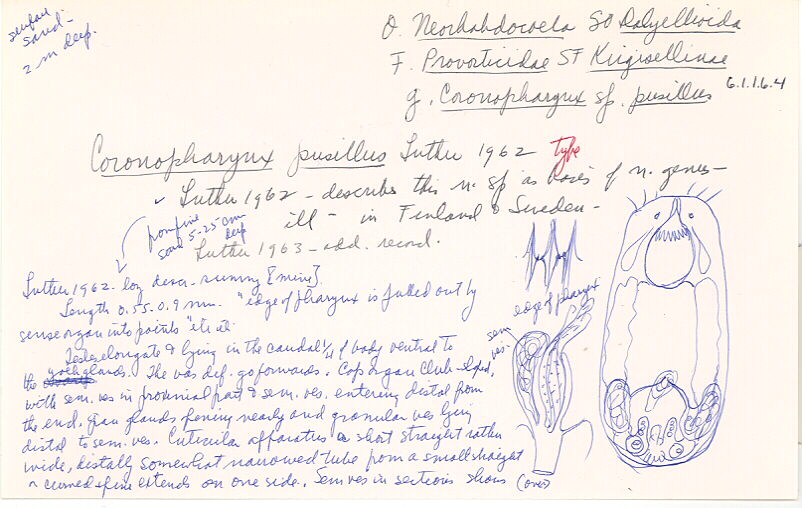 surface
sand -
2 m deep.
O. Neorhabdocoela SO Dalyellioida
F. Provorticidae SF Kirgisellinae
g. Coronopharynx sp. pusillus 6.1.1.6.4
Coronopharynx pusillus Luther 1962 type
✓ Luther 1962 - describes this n. sp as basis of n. genus -
ill - in Finland & Sweden -
from fine
sand 5-25 cm
deep
Luther 1963 - add. record.
Luther 1962. long descr. summy [mine].
Length 0.55-0.9 mm. "edge of pharynx is pulled out by
sense organ into points"
edge of pharynx
sem
ves.
Testes elongate & lying in the caudal 1/4 of body ventral to
the glands. The vas def. go forwards. Cop organ club-shpd,
with sem. ves in proximal part & sem. ves. entering distal from
the end. Gran glands opening nearby and granular ves lying
distal to sem. ves. Cuticular apparatus a short straight rather
wide, distally somewhat narrowed tube from a small straight
curved spine extends on one side. Sem ves in sections shows (over)